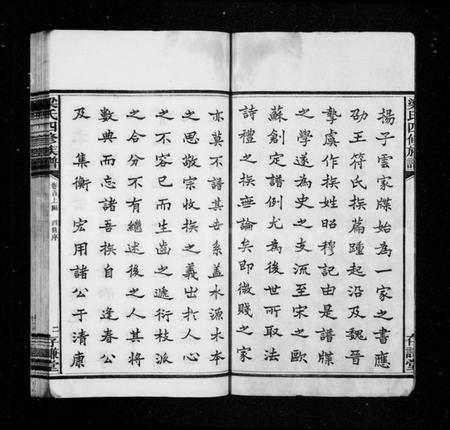 揚子雲家牒始為一家之書應
劭王符氏族篇踵起沿及魏晉
摯虞作族姓昭穆記由是譜牒
之學遂為史之支流至宋之歐
蘇創定譜例尤為後世所取法
詩禮之族無論矣即微賤之家
亦莫不譜其世系蓋水源木本
之思敬宗收族之義出於人心
之不容已而生齒之遞衍枝派
之合分不有繼述後之人其將
數典而忘諸吾族自 逢春公
及 集衡 宏用諸公于清康
梁氏四修族譜
卷首上編 四修序
二
存謙堂
梁氏四修族譜
存謙堂